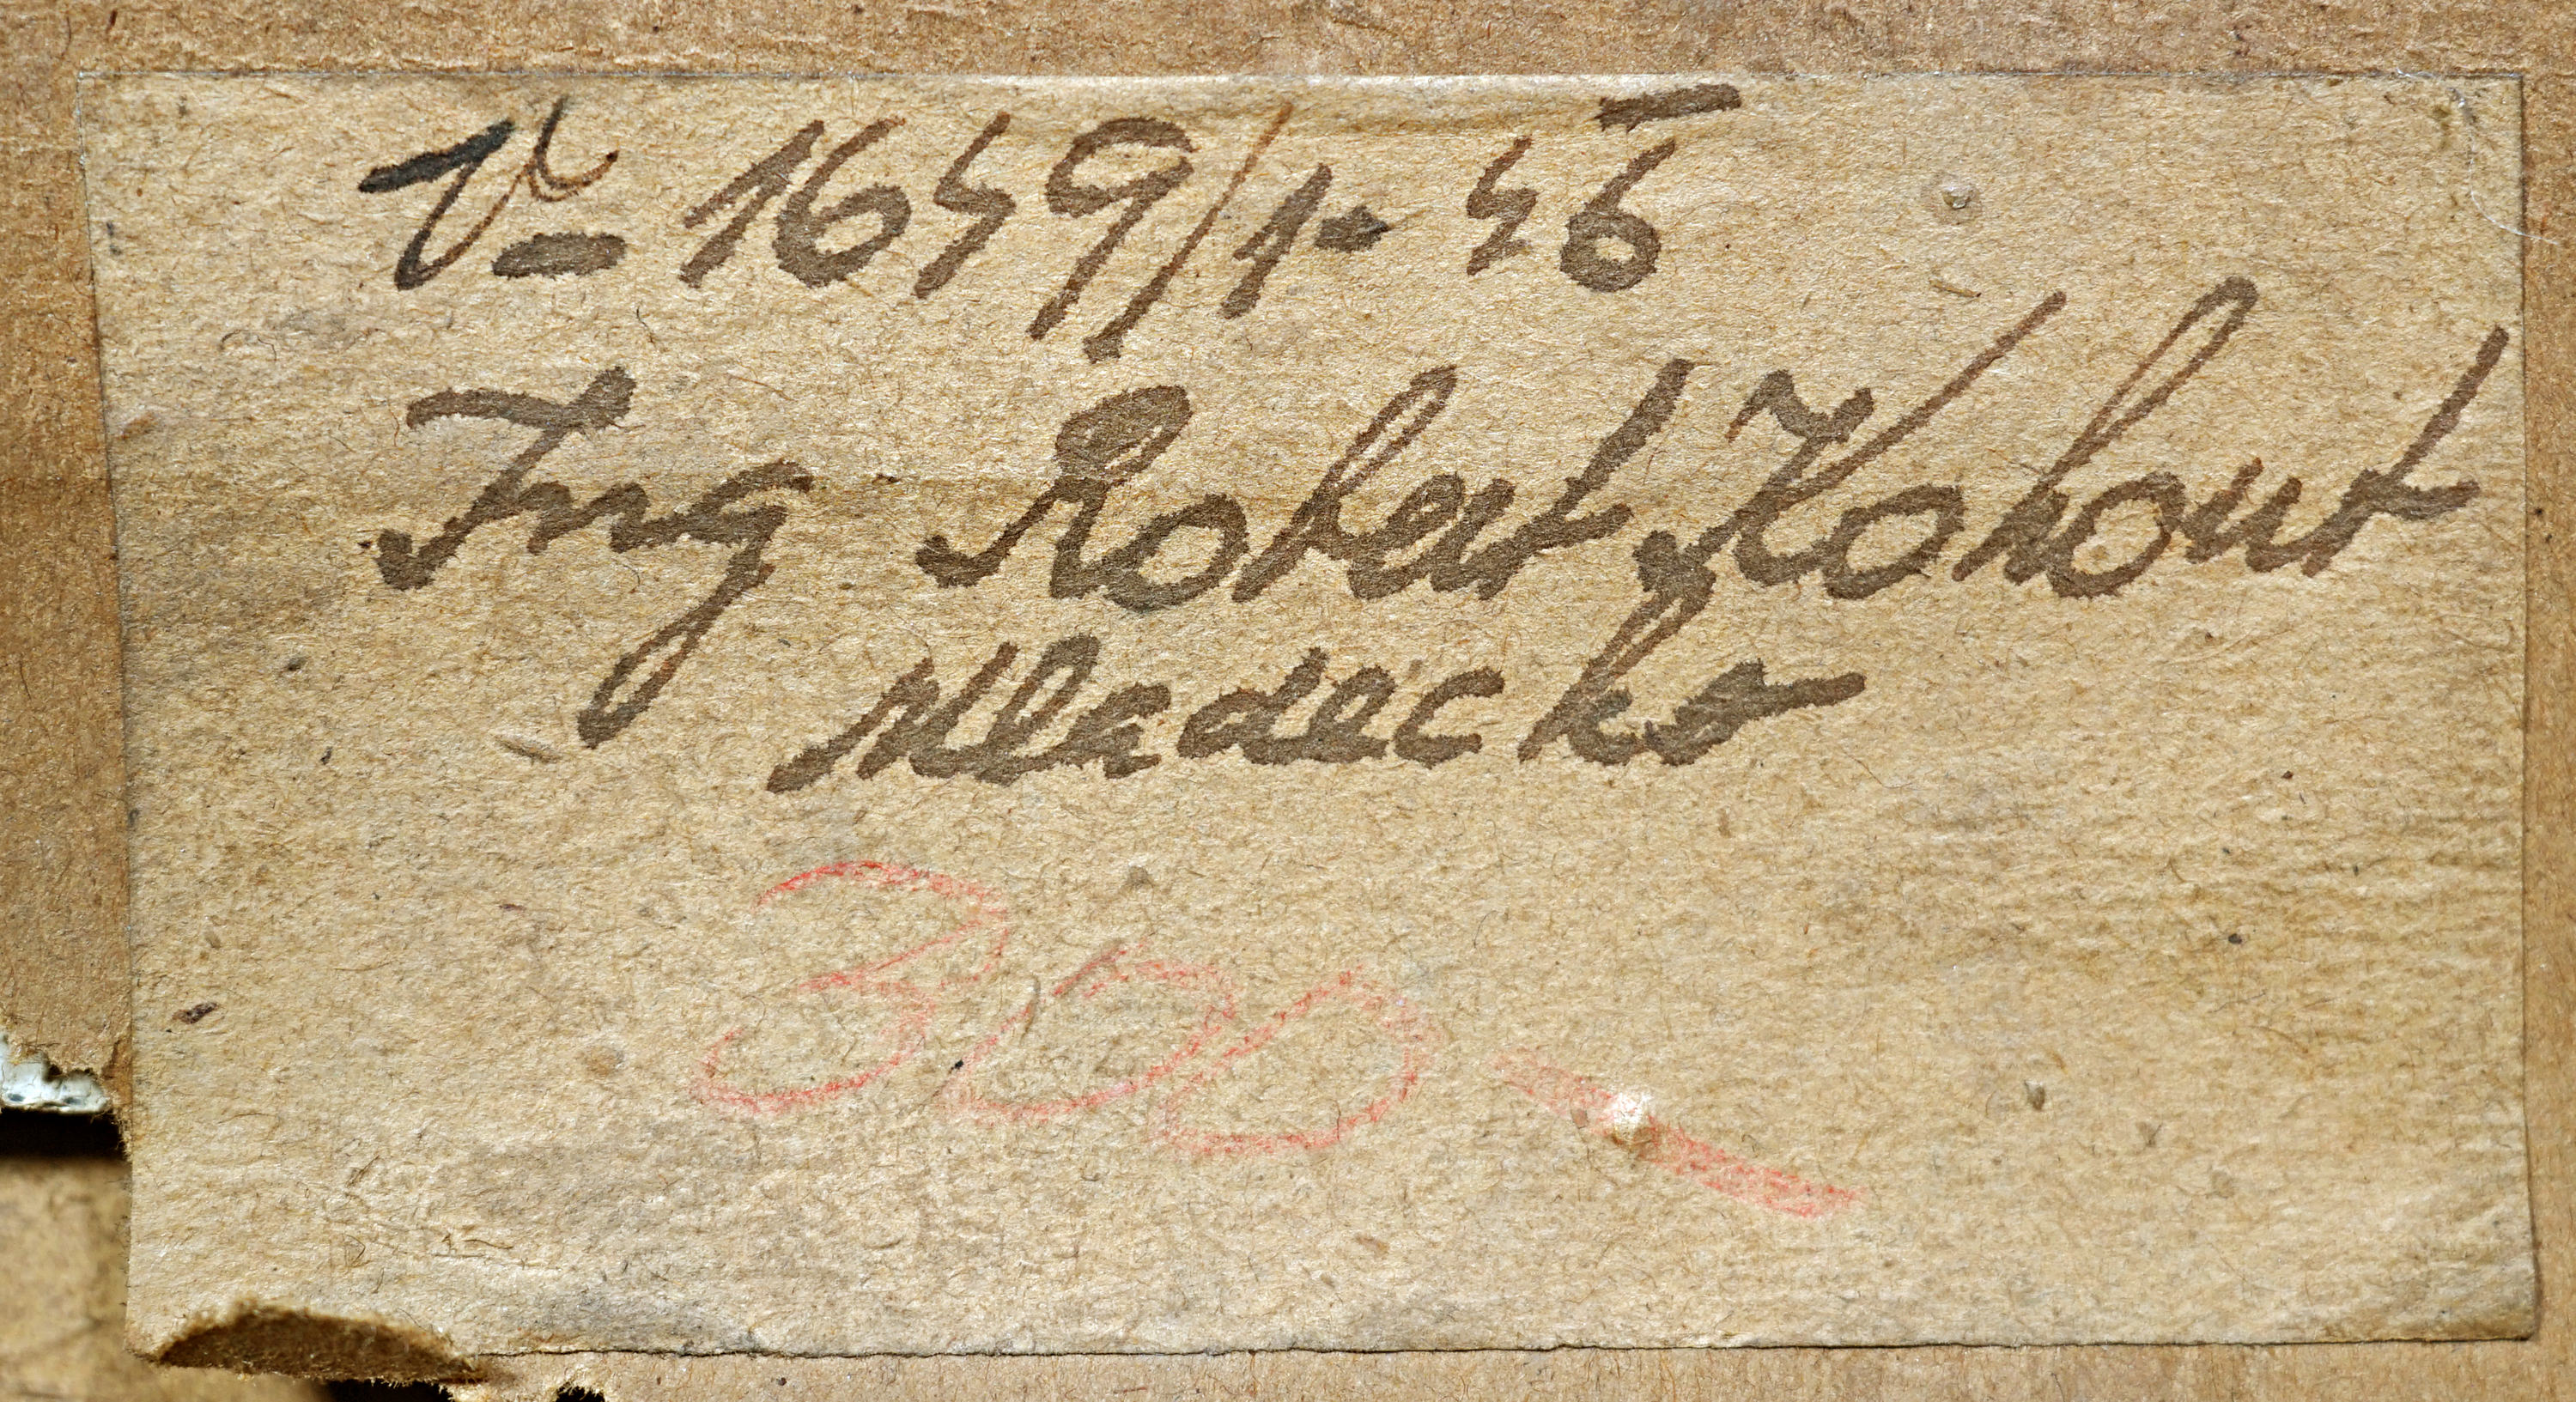 V- 1659/1- 46
Ing Robert Kohout
Mladecko
300 -